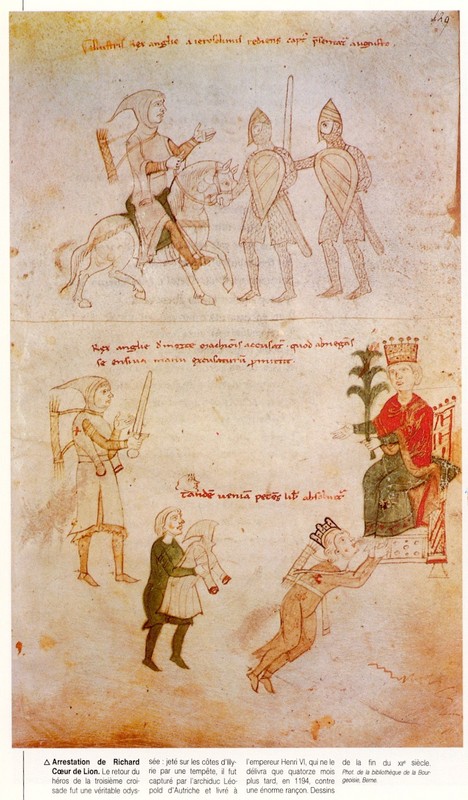 Illustris Rex anglie a ierosolimis rediens capt' p̄sentat' augusto.
Rex anglie d' morte marchionis accusat' quod abnegans
se ensiua manu excusaturum p̄mittit
Tandē ueniā petēs lib' absoluit'
△ Arrestation de Richard
Cœur de Lion. Le retour du
héros de la troisième croi-
sade fut une véritable odys-
sée : jeté sur les côtes d'Illy-
rie par une tempête, il fut
capturé par l'archiduc Léo-
pold d'Autriche et livré à
l'empereur Henri VI, qui ne le
délivra que quatorze mois
plus tard, en 1194, contre
une énorme rançon. Dessins
de la fin du XIIᵉ siècle.
Phot. de la bibliothèque de la Bour-
geoisie, Berne.